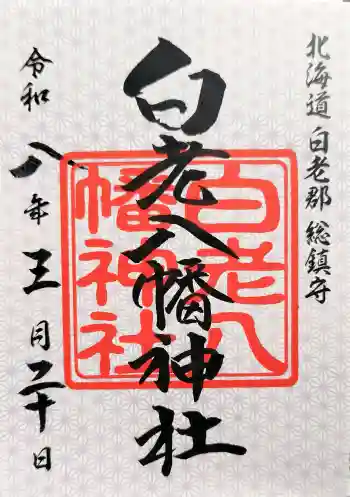 北海道白老郡総鎮守
白老八幡神社
白老八
幡神社
令和八年三月二十日